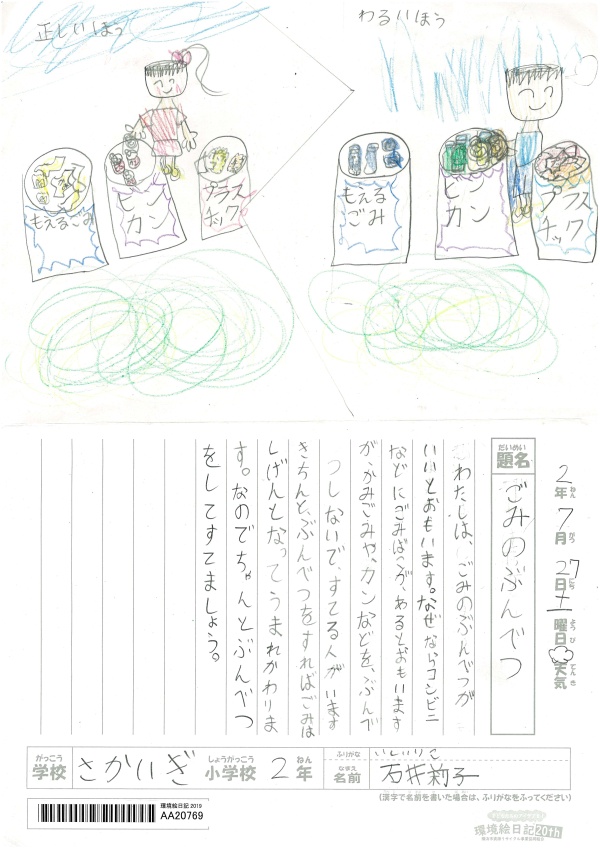 正しいほう
わるいほう
もえるごみ
ビン
カン
プラス
チック
もえる
ごみ
ビン
カン
プラス
チック
2年7月27日土曜日天気
ねん がつ にち ようび てんき
だいめい
題名
ごみのぶんべつ
わたしは、ごみのぶんべつが
いいとおもいます。なぜならコンビニ
などにごみばこが、あるとおもいます
が、かみごみや、カンなどを、ぶんべ
つしないで、すてる人がいます
きちんと、ぶんべつをすればごみは
しげんとなってうまれかわりま
す。なのでちゃんとぶんべつ
をしてすてましょう。
がっこう
学校
さかいぎ
しょうがっこう
小学校
2
ねん
年
ふりがな
いしいりこ
なまえ
名前
石井莉子
(漢字で名前を書いた場合は、ふりがなをふってください)
環境絵日記 2019
AA20769
環境絵日記20th